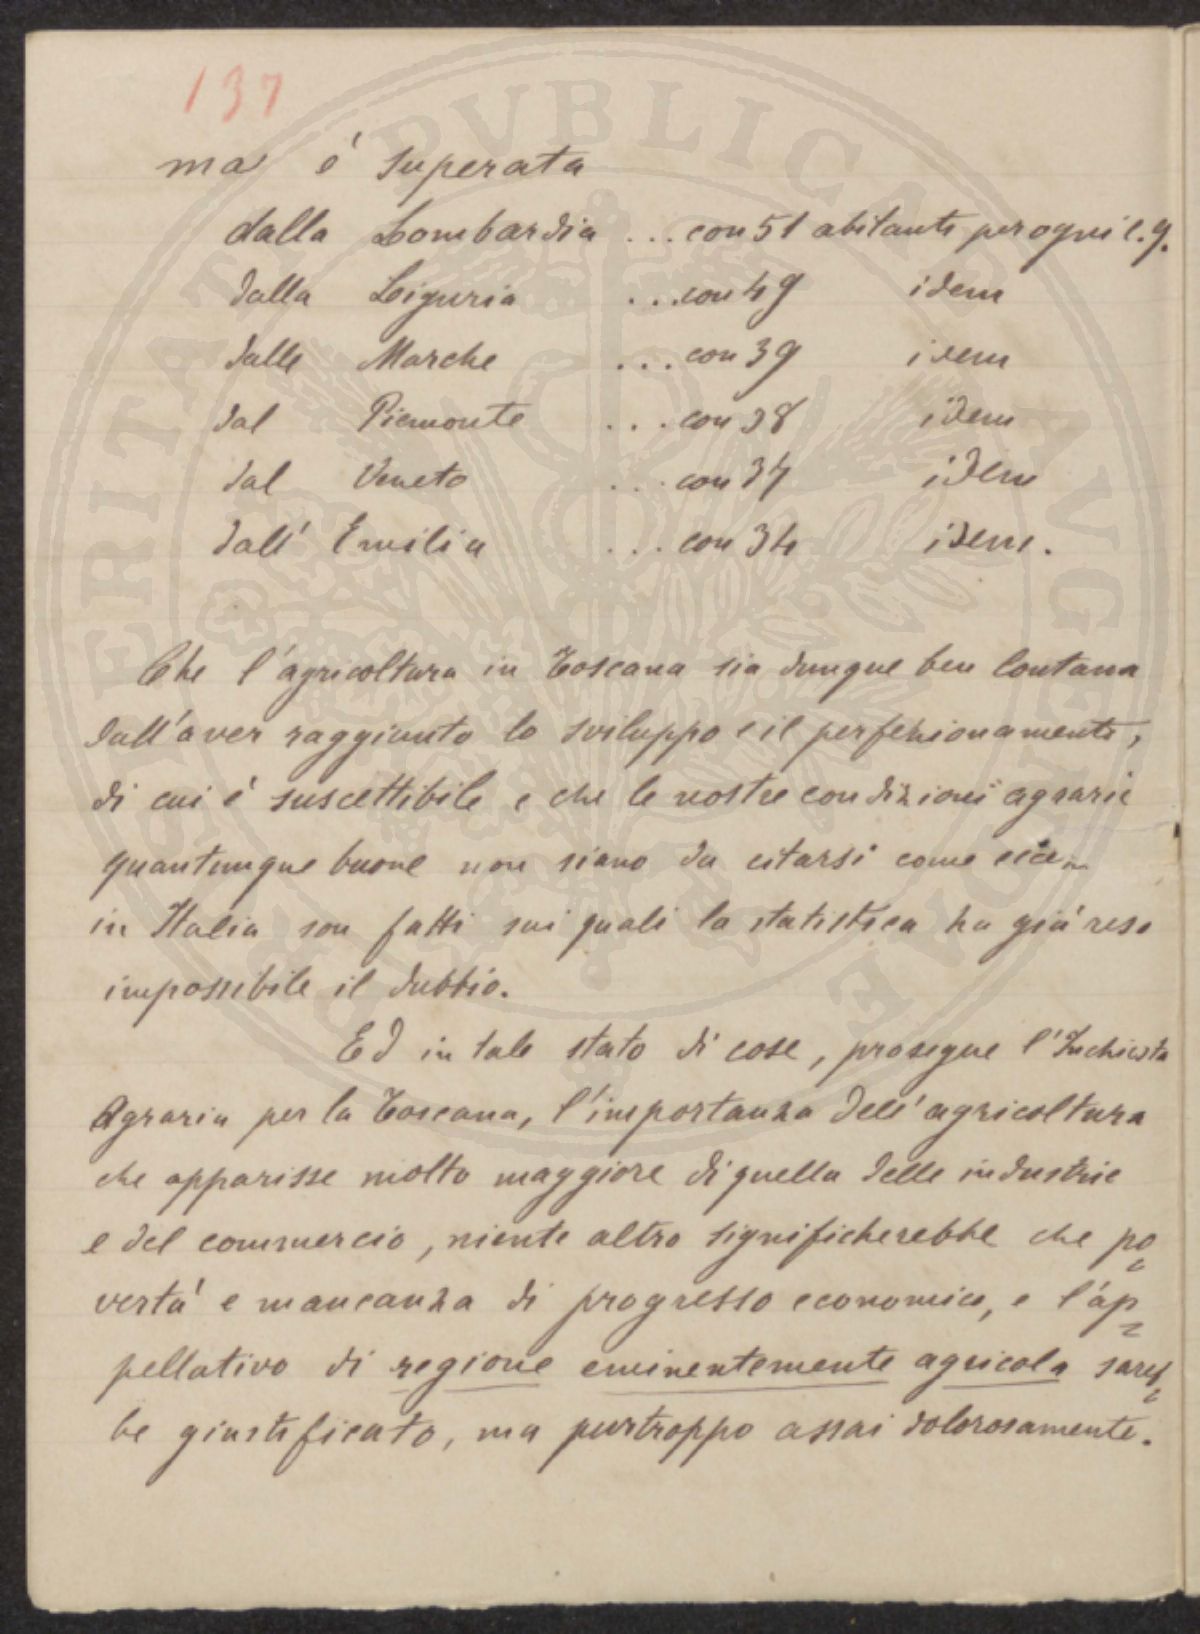 137
ma é superata
dalla Lombardia ... con 51 abitante per ogni c. q.
dalla Liguria ... con 49 idem
dalle Marche ... con 39 idem
dal Piemonte ... con 38 idem
dal Veneto ... con 37 idem
dall' Emilia ... con 34 idem.
Che l'agricoltura in Toscana sia dunque ben lontana
dall'aver raggiunto lo sviluppo e il perfezionamento,
di cui é suscettibile e che le nostre condizioni agrarie
quantunque buone non siano da citarsi come
in Italia son fatti sui quali la statistica ha giá reso
impossibile il dubbio.
Ed in tale stato di cose, prosegue l'Inchiesta
Agraria per la Toscana, l'importanza dell'agricoltura
che apparisse molto maggiore di quella delle industrie
e del commercio, niente altro significherebbe che po=
vertá e mancanza di progresso economico, e l'ap=
pellativo di regione eminentemente agricola sareb=
be giustificato, ma purtroppo assai dolorosamente.
PVBLICAE
VERITATI
AVGENDAE